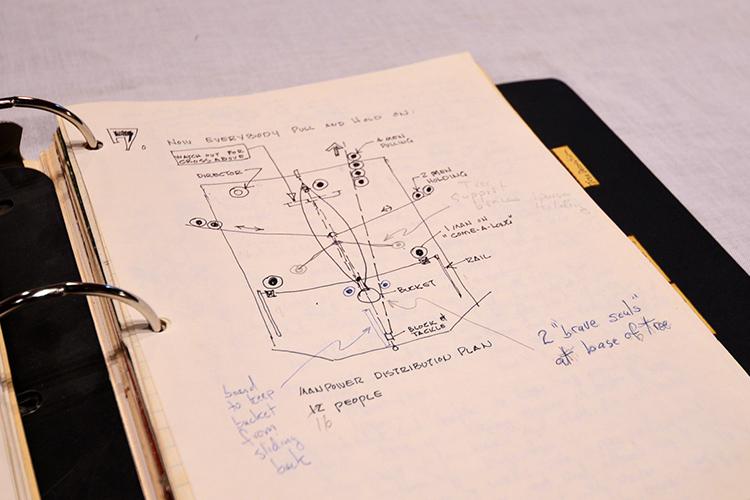 7. NOW EVERYBODY PULL AND HOLD ON.
WATCH OUT FOR
CROSS ABOVE
4 MEN
PULLING
DIRECTOR
2 MEN
HOLDING
Tree
Support
between
1 MAN ON
"COME-A-LONG"
RAIL
BUCKET
BLOCK &
TACKLE
2 "brave souls"
at base of tree
board
to keep
bucket
from
sliding
back
MANPOWER DISTRIBUTION PLAN
12 PEOPLE
16